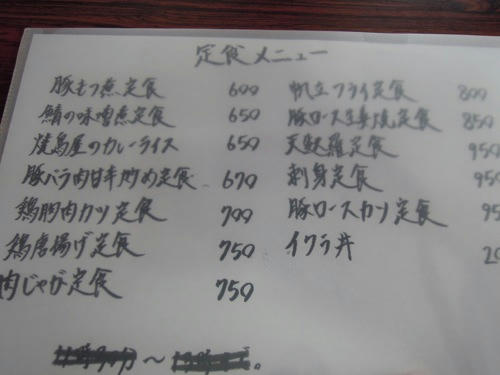 定食メニュー
豚もつ煮定食 600
鯖の味噌煮定食 650
焼鳥屋のカレーライス 650
豚バラ肉甘辛炒め定食 670
鶏胸肉カツ定食 700
鶏唐揚げ定食 750
肉じゃが定食 750
帆立フライ定食 800
豚ロース生姜焼定食 850
天麩羅定食 950
刺身定食 950
豚ロースカツ定食 95
イクラ丼 20
〜 。